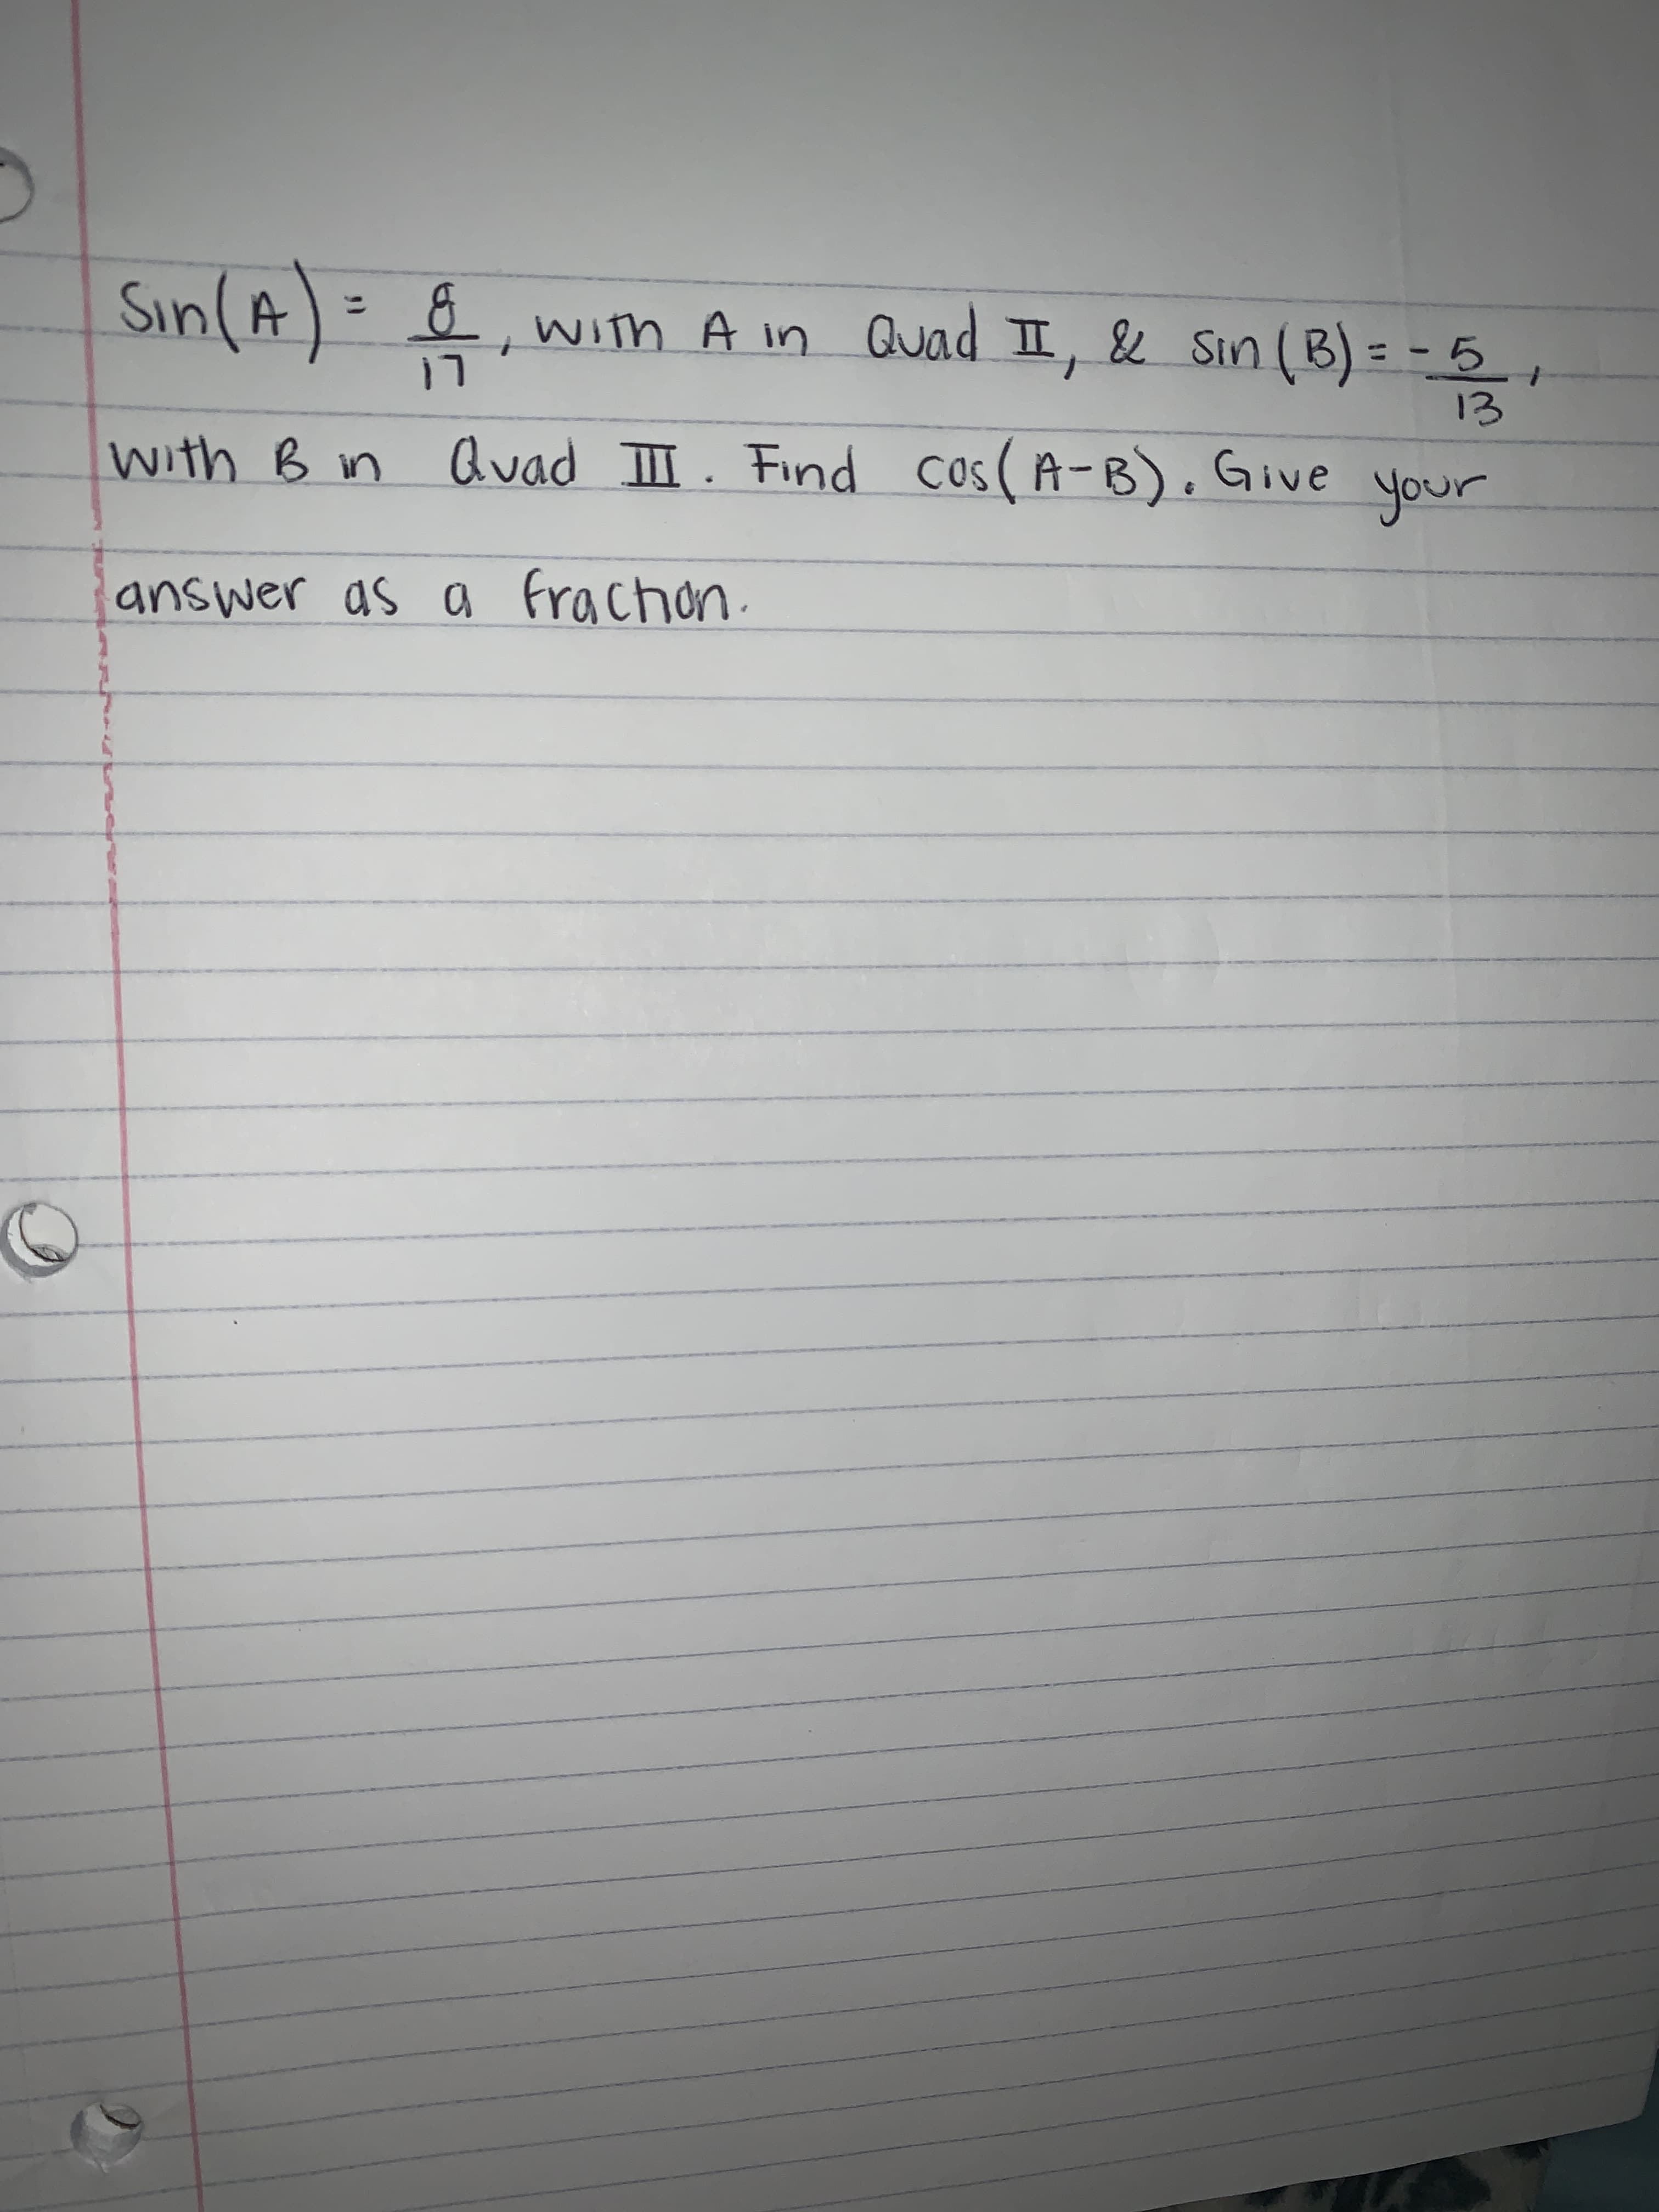 Sin(A) = 8/17, with A in Quad II, & sin(B) = -5/13,
with B in Quad III. Find cos(A-B). Give your
answer as a fraction.